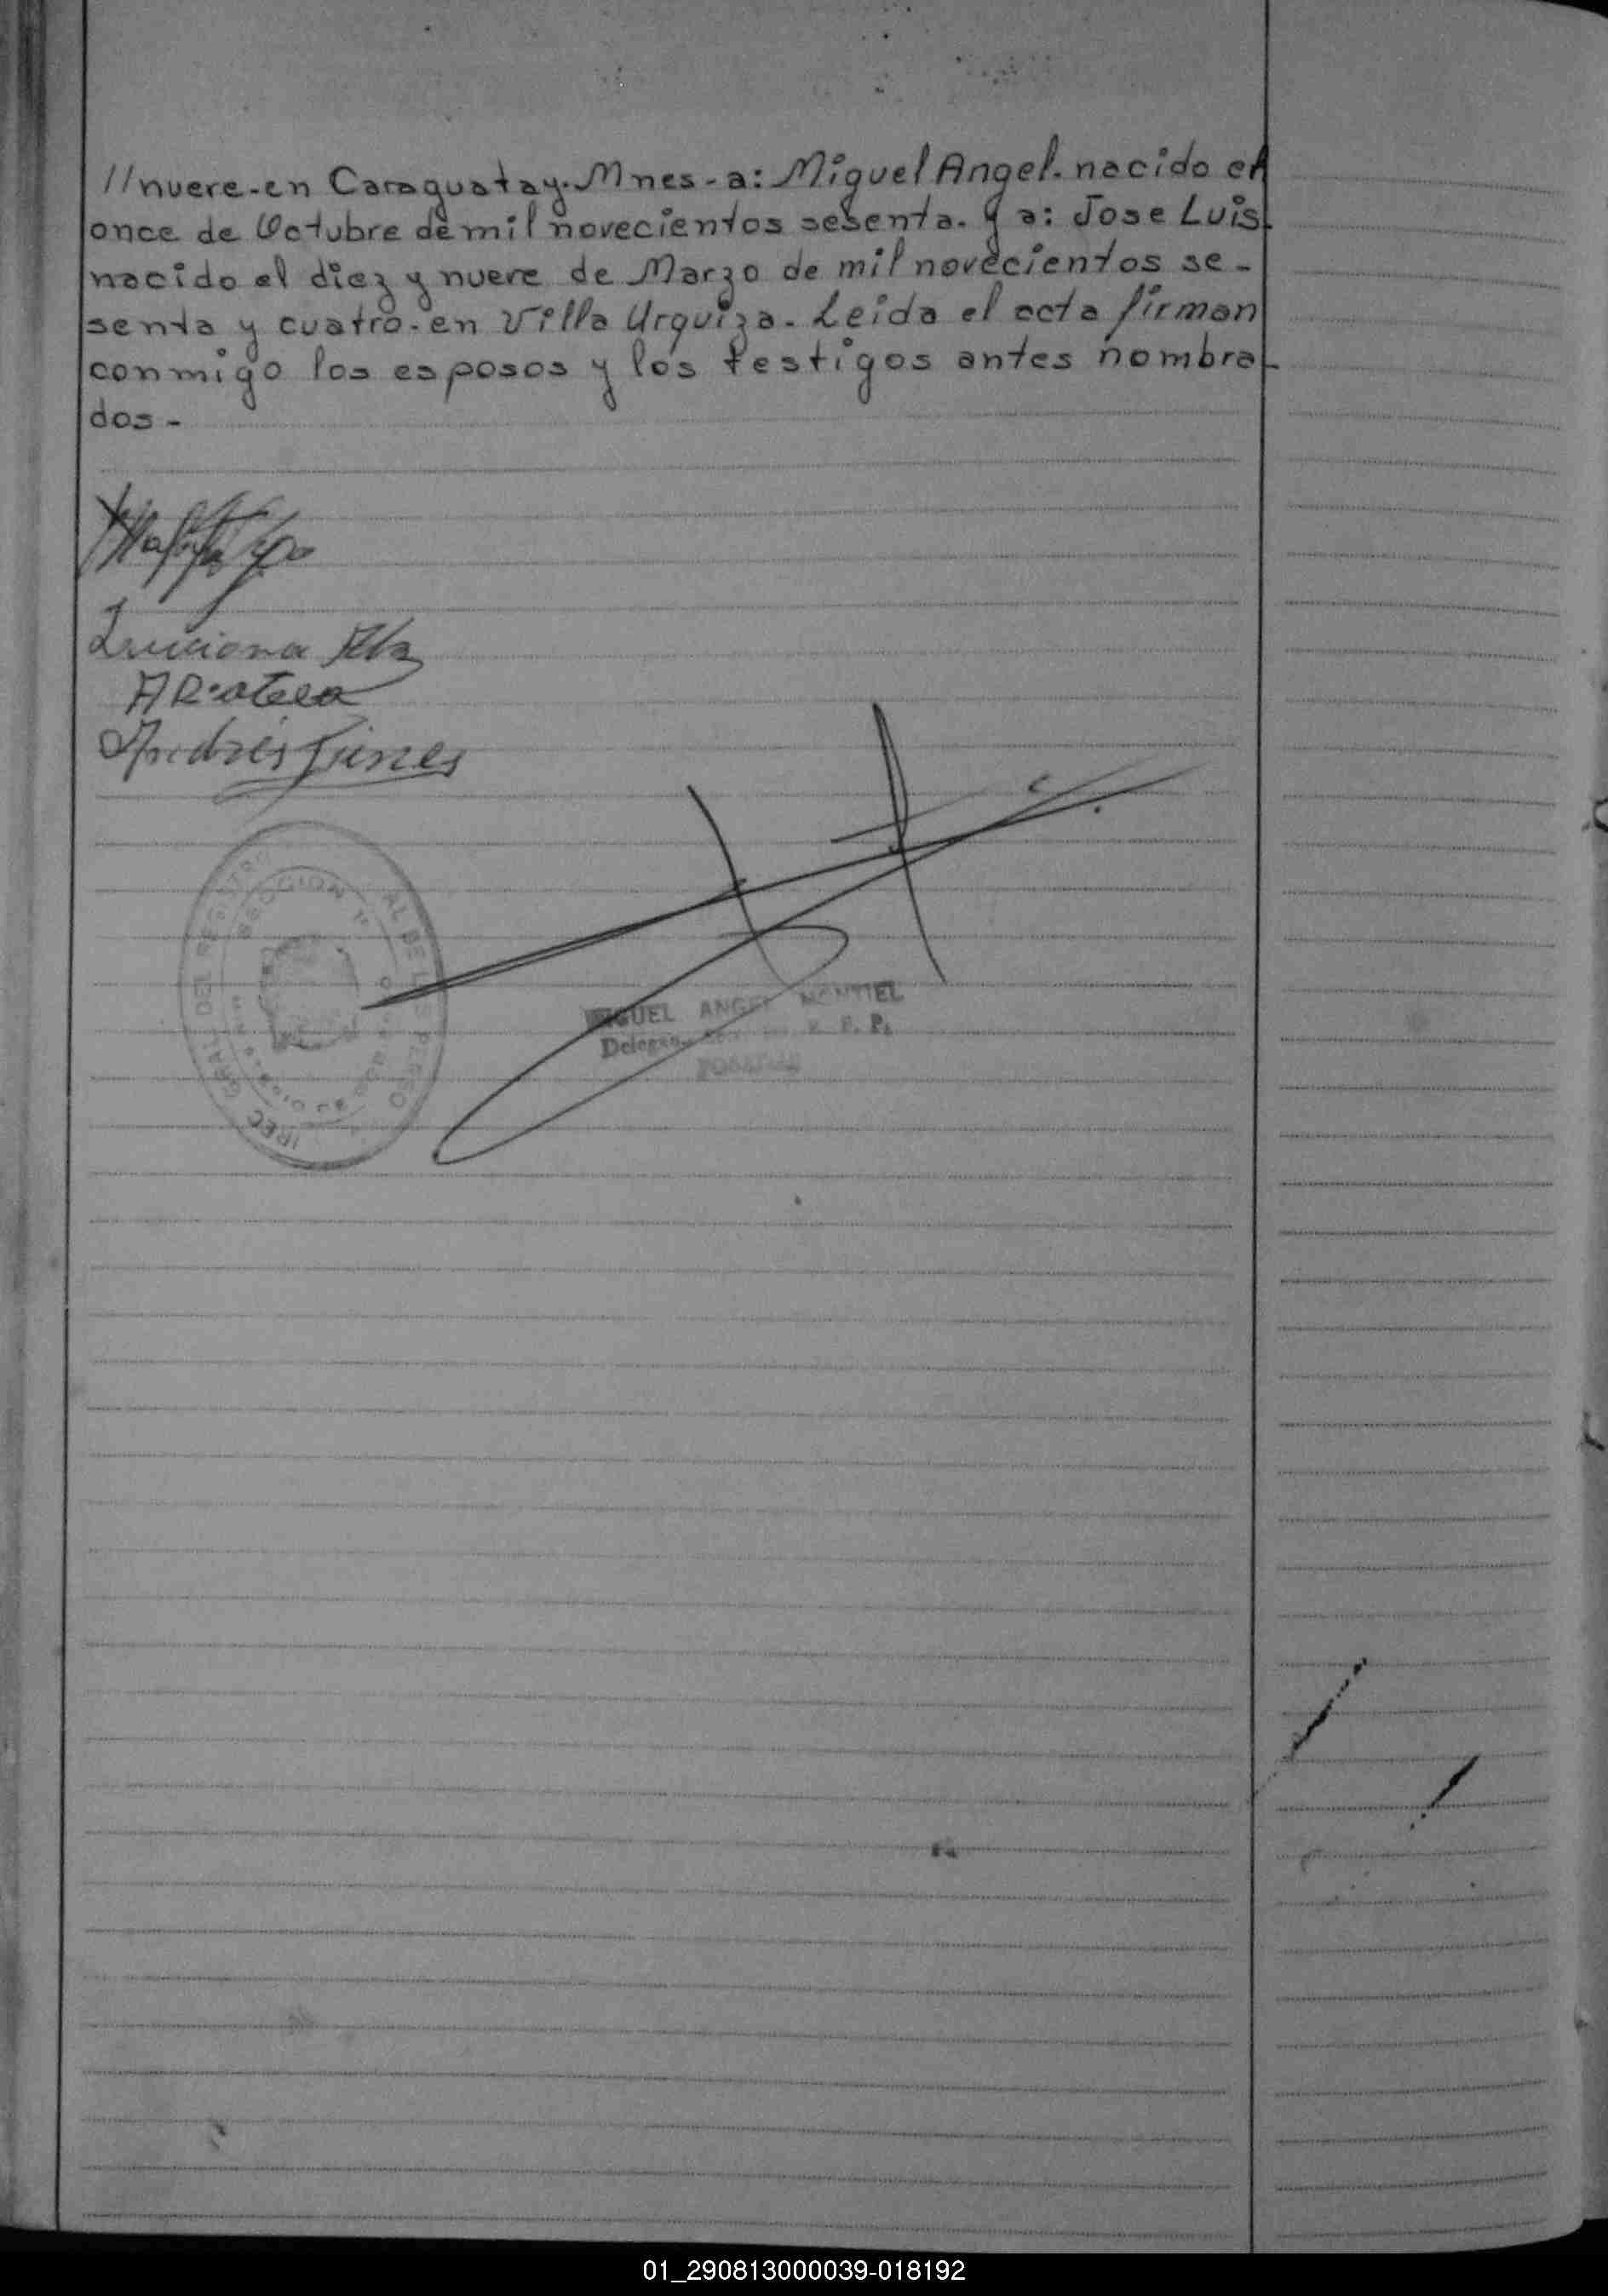 //nueve-en Caraguatay. Mnes-a: Miguel Angel. nacido el
once de Octubre de mil novecientos sesenta. y a: Jose Luis
nacido el diez y nueve de Marzo de mil novecientos se-
senta y cuatro-en Villa Urquiza. Leida el acta firman
conmigo los esposos y los testigos antes nombra-
dos-
Luciana
Andrés Funes
GRAL DEL REGISTRO
SECCION 1ª
MIGUEL ANGEL MONTIEL
POSADAS
01_290813000039-018192